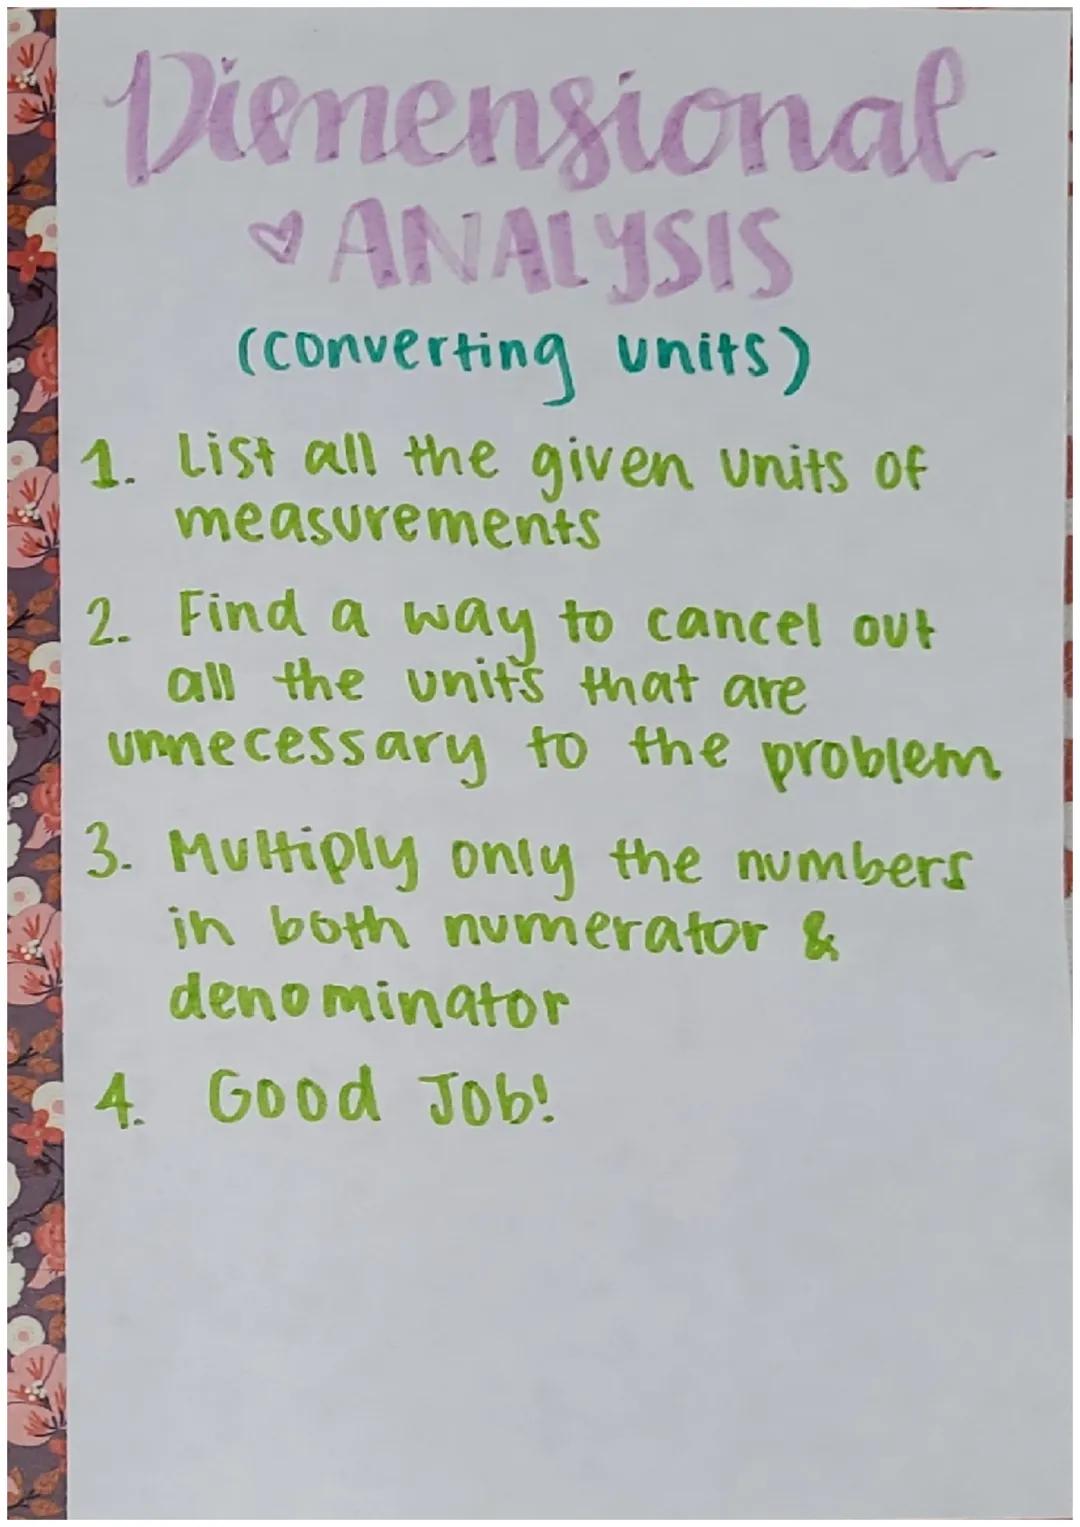 Dimensional
ANALYSIS
(converting units)
1. List all the given units of
measurements
2. Find a way to cancel out
all the units that are
unnecessary to the problem
3. Multiply only the numbers
in both numerator &
denominator
4. Good Job!